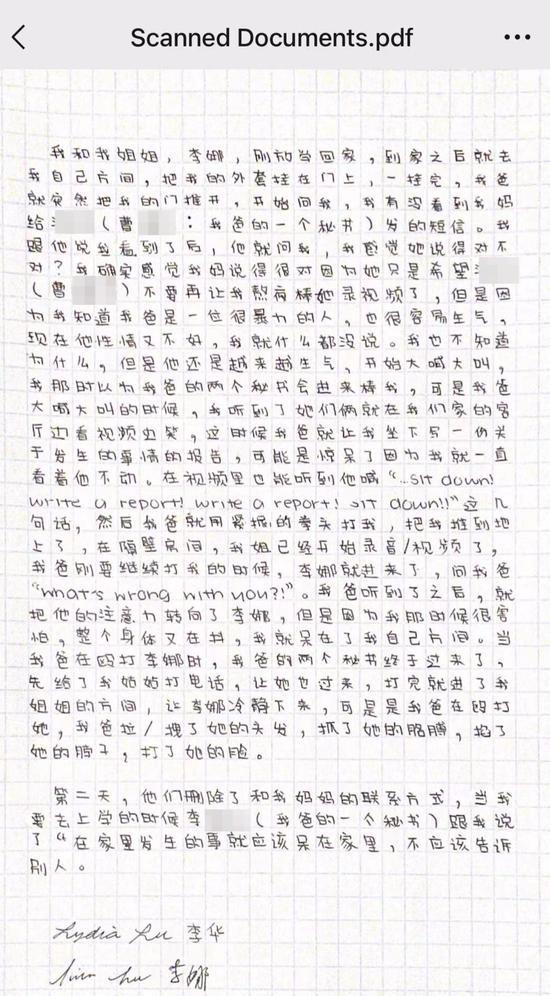 Scanned Documents.pdf
我和我姐姐，李娜，刚放学回家，到家之后就去
我自己房间，把我的外套挂在门上，一挂完，我爸
就突然把我的门推开，开始问我，我有没看到我妈
给（曹：我爸的一个秘书）发的短信。我
跟他说我看到了后，他就问我，我感觉她说得对不
对？我确实感觉我妈说得很对因为她只是希望
（曹）不要再让我熬夜棒她录视频了，但是因
为我知道我爸是一位很暴力的人，也很容易生气，
现在他性情又不好，我就什么都没说。我也不知道
为什么，但是他还是越来越生气，开始大喊大叫，
我那时以为我爸的两个秘书会进来棒我，可是我爸
大喊大叫的时候，我听到了她们俩就在我们家的客
厅边看视频边笑，这时候我爸就让我坐下写一份关
于发生的事情的报告，可能是惊呆了因为我就一直
看着他不动。在视频里也能听到他喊“...sit down!
write a report! write a report! sit down!!”这几
句话，然后我爸就用紧握的拳头打我，把我推到地
上了，在隔壁房间，我姐已经开始录音/视频了，
我爸刚要继续打我的时候，李娜就进来了，问我爸
“what's wrong with you?!”。我爸听到了之后，就
把他的注意力转向了李娜，但是因为我那时候很害
怕，整个身体又在抖，我就呆在了我自己房间。当
我爸在殴打李娜时，我爸的两个秘书终于过来了，
先给了我姑姑打电话，让她也过来，打完就进了我
姐姐的房间，让李娜冷静下来，可是是我爸在殴打
她，我爸拉/拽了她的头发，抓了她的胳膊，掐了
她的脖子，打了她的脸。
第二天，他们删除了和我妈妈的联系方式，当我
要去上学的时候李（我爸的一个秘书）跟我说
了“在家里发生的事就应该呆在家里，不应该告诉
别人。
Lydia Hu 李华
Lina hu 李娜